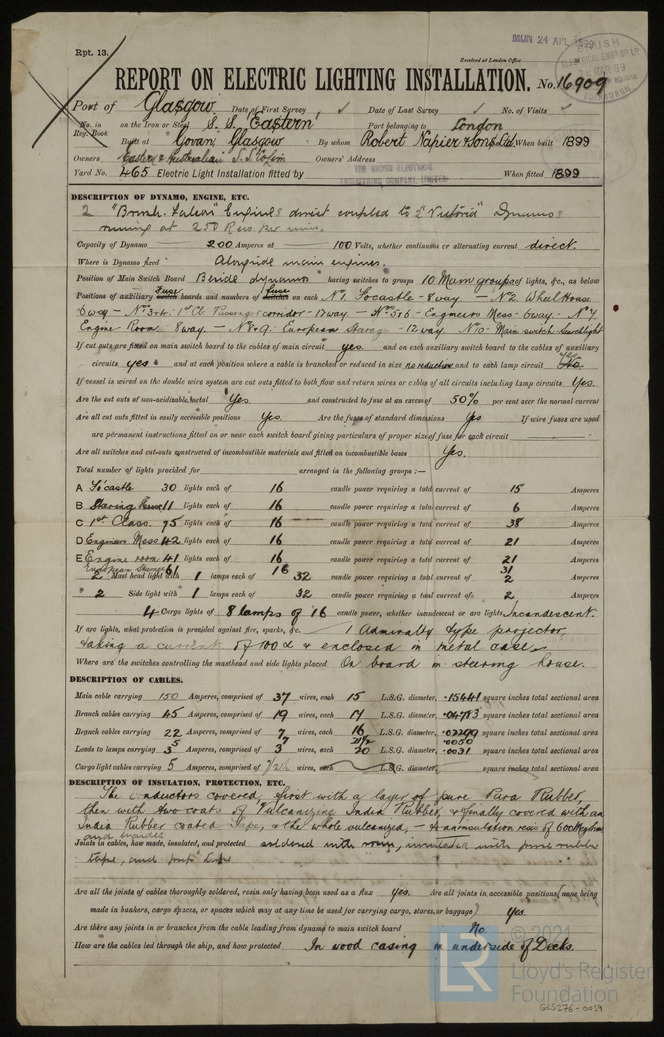 Rpt. 13.
MUN 24 APL 1899
Received at London Office
REPORT ON ELECTRIC LIGHTING INSTALLATION. No. 16909
Port of Glasgow Date of First Survey Date of Last Survey No. of Visits
No. in Reg. Book on the Iron or Steel S.S. 'Eastern' Port belonging to London
Built at Govan, Glasgow By whom Robert Napier & Sons Ltd. When built 1899
Owners Eastern & Australian S.S. Co Lim Owners' Address
Yard No. 465 Electric Light Installation fitted by When fitted 1899
DESCRIPTION OF DYNAMO, ENGINE, ETC.
2 "Brush-Falcon" Engines direct coupled to 2 "Victoria" Dynamos
running at 250 Revs. per min.
Capacity of Dynamo 200 Amperes at 100 Volts, whether continuous or alternating current direct.
Where is Dynamo fixed Alongside main engines.
Position of Main Switch Board Beside dynamo having switches to groups 10 Main groups of lights, &c., as below
Positions of auxiliary switch Fuse boards and numbers of switches fuse on each No 1. Focastle - 8 way - No 2. Wheel House
6 way - Nos 3 & 4. 1st Cl. Passenger corridor - 12 way. - Nos 5 & 6 - Engineers Mess - 6 way - No 7.
Engine Room 8 way. - No 8 & 9. European Storage - 12 way No 10. Main switch Searchlight
If cut outs are fitted on main switch board to the cables of main circuit yes and on each auxiliary switch board to the cables of auxiliary
circuits yes and at each position where a cable is branched or reduced in size no reduction and to each lamp circuit yes No
If vessel is wired on the double wire system are cut outs fitted to both flow and return wires or cables of all circuits including lamp circuits Yes.
Are the cut outs of non-oxidizable metal Yes and constructed to fuse at an excess of 50% per cent over the normal current
Are all cut outs fitted in easily accessible positions Yes. Are the fuses of standard dimensions Yes. If wire fuses are used
are permanent instructions fitted on or near each switch board giving particulars of proper size of fuse for each circuit
Are all switches and cut-outs constructed of incombustible materials and fitted on incombustible bases Yes.
Total number of lights provided for arranged in the following groups :—
A Fo'castle 30 lights each of 16 candle power requiring a total current of 15 Amperes
B 11 lights each of 16 candle power requiring a total current of 6 Amperes
C 1st Class. 75 lights each of 16 candle power requiring a total current of 38 Amperes
D Engineers Mess 42 lights each of 16 candle power requiring a total current of 21 Amperes
E Engine room 41 lights each of 16 candle power requiring a total current of 21 Amperes
European 61 16 31
2 Mast head light with 1 lamps each of 32 candle power requiring a total current of 2 Amperes
2 Side light with 1 lamps each of 32 candle power requiring a total current of 2 Amperes
4 Cargo lights of 8 lamps of 16 candle power, whether incandescent or arc lights Incandescent.
If arc lights, what protection is provided against fire, sparks, &c. 1 Admiralty type projector,
taking a current of 100 a & enclosed in metal case.
Where are the switches controlling the masthead and side lights placed On board in steering house.
DESCRIPTION OF CABLES.
Main cable carrying 150 Amperes, comprised of 37 wires, each 15 L.S.G. diameter, .15441 square inches total sectional area
Branch cables carrying 45 Amperes, comprised of 19 wires, each 17 L.S.G. diameter, .04783 square inches total sectional area
Branch cables carrying 22 Amperes, comprised of 7 wires, each 16 L.S.G. diameter, .02299 square inches total sectional area
5 7 21½ .0050
Leads to lamps carrying 3 Amperes, comprised of 3 wires, each 20 L.S.G. diameter, .0031 square inches total sectional area
Cargo light cables carrying 5 Amperes, comprised of wires, each L.S.G. diameter, square inches total sectional area
DESCRIPTION OF INSULATION, PROTECTION, ETC.
The conductors covered, first with a layer of pure Para Rubber,
then with two coats of Vulcanizing India Rubber, & finally covered with an
India Rubber coated tape, & the whole vulcanized, - to an insulation resce of 600 Megohms
and braided
Joints in cables, how made, insulated, and protected soldered with resin, insulated with pure rubber
tape, and tape
Are all the joints of cables thoroughly soldered, resin only having been used as a flux yes. Are all joints in accessible positions (none being
made in bunkers, cargo spaces, or spaces which may at any time be used for carrying cargo, stores, or baggage) Yes.
Are there any joints in or branches from the cable leading from dynamo to main switch board No.
How are the cables led through the ship, and how protected In wood casing on underside of Decks.
© 2021
LR Lloyd's Register
Foundation
GLS276-0059